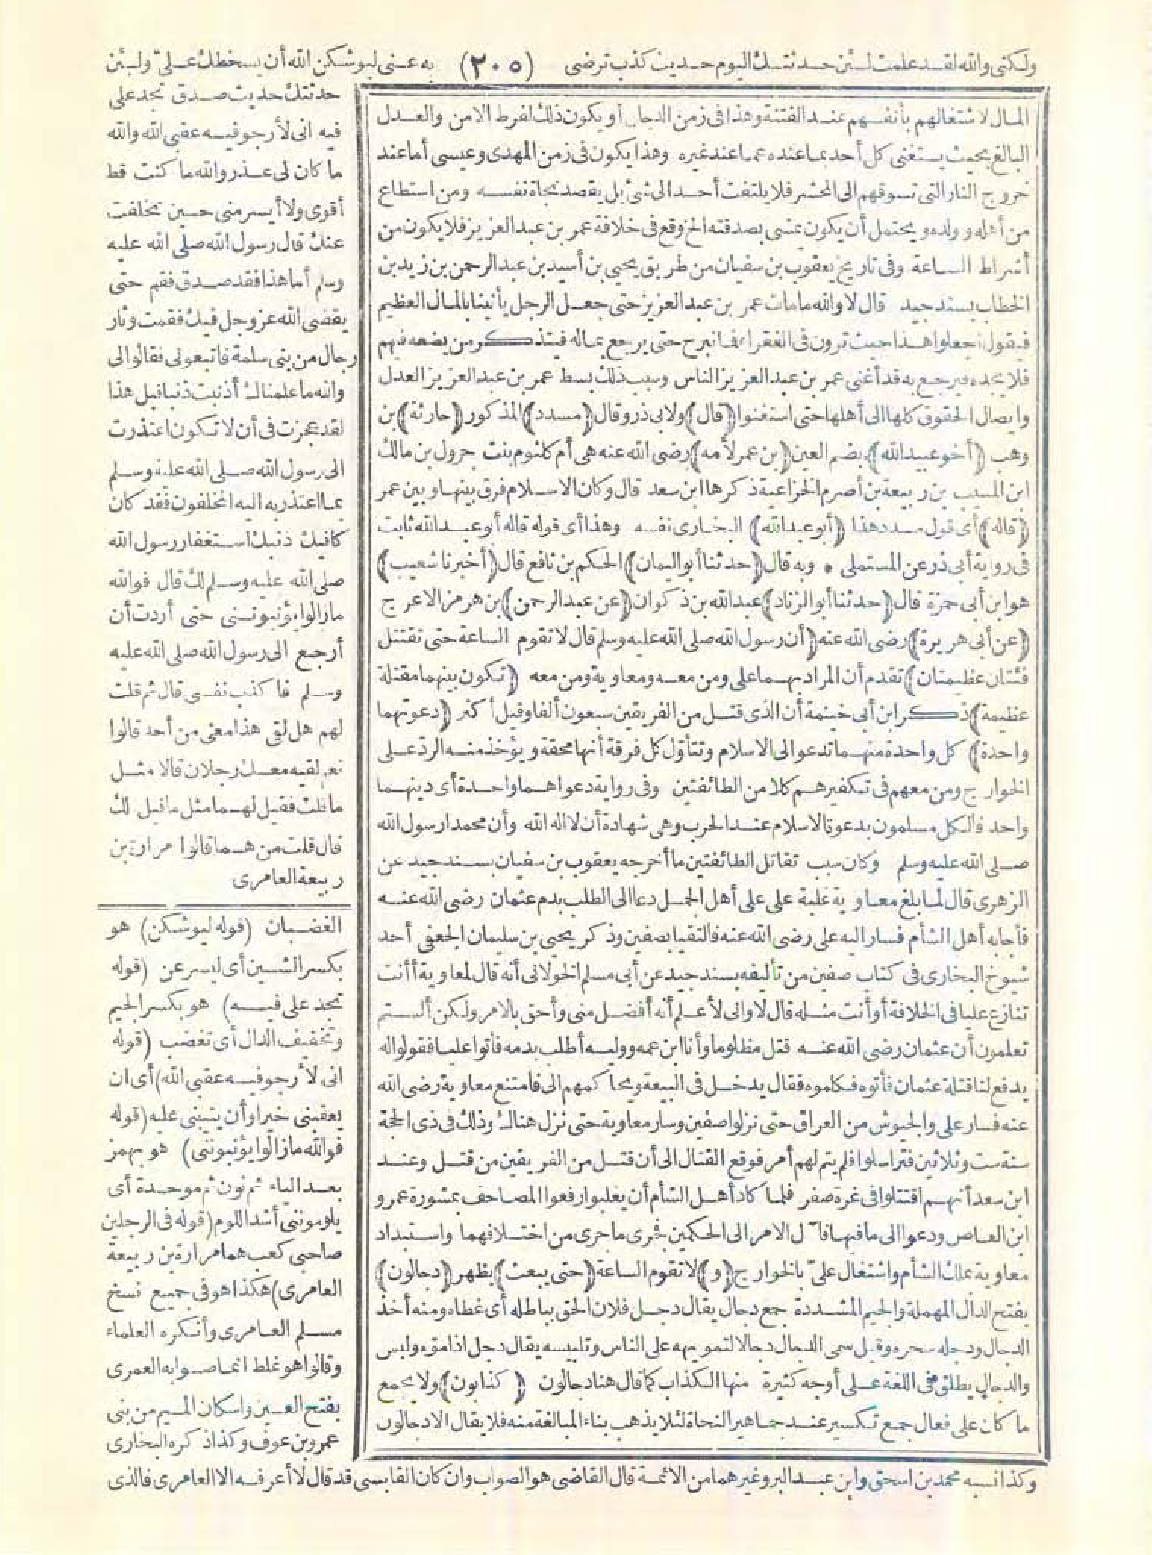 ولكنى والله لقد علمت لئن حدثتك اليوم حديث كذب ترضى (٢٠٥) به عنى ليوشكن الله أن يسخطك علىّ ولئن
المال لاشتغالهم بأنفسهم عند الفتنة وهذا فى زمن الدجال أو يكون ذلك لفرط الامن والعدل
البالغ بحيث يستغنى كل أحد بما عنده عما عند غيره وهذا يكون فى زمن المهدى وعيسى أما عند
خروج النار التى تسوقهم الى المحشر فلا يلتفت أحد الى شئ بل يقصد نجاة نفسه ومن استطاع
من أهله وولده ويحتمل أن يكون يمشى بصدقته الخ وقع فى خلافة عمر بن عبد العزيز فلا يكون من
أشراط الساعة وفى تاريخ يعقوب بن سفيان من طريق يحيى بن أسيد بن عبد الرحمن بن زيد بن
الخطاب بسند جيد قال لا والله ما مات عمر بن عبد العزيز حتى جعل الرجل يأتينا بالمال العظيم
فيقول اجعلوا هذا حيث ترون فى الفقراء فما يبرح حتى يرجع بماله فيتذكر من يضعه فيهم
فلا يجده فيرجع به قد أغنى عمر بن عبد العزيز الناس وسبب ذلك بسط عمر بن عبد العزيز العدل
وايصال الحقوق كلها الى أهلها حتى استغنوا (قال) ولابى ذر وقال (مسدد) المذكور (حارثة) بن
وهب (أخو عبيد الله) بضم العين (بن عمر لأمه) رضى الله عنه هى أم كلثوم بنت جرول بن مالك
ابن المسيب بن ربيعة بن أصرم الخزاعية ذكرها ابن سعد قال وكان الاسلام فرق بينها وبين عمر
(قاله) أى قول مسدد هذا (أبو عبد الله) البخارى نفسه وهذا أى قوله قاله أبو عبد الله ثابت
فى رواية أبى ذر عن المستملى * وبه قال (حدثنا أبو اليمان) الحكم بن نافع قال (أخبرنا شعيب)
هو ابن أبى حمزة قال (حدثنا أبو الزناد) عبد الله بن ذكوان (عن عبد الرحمن) بن هرمز الاعرج
(عن أبى هريرة) رضى الله عنه (أن رسول الله صلى الله عليه وسلم قال لا تقوم الساعة حتى تقتتل
فئتان عظيمتان) تقدم أن المراد بهما على ومن معه ومعاوية ومن معه (تكون بينهما مقتلة
عظيمة) ذكر ابن أبى خيثمة أن الذى قتل من الفريقين سبعون ألفا وقيل أكثر (دعوتهما
واحدة) كل واحدة منهما تدعو الى الاسلام وتتأول كل فرقة أنها محقة ويؤخذ منه الرد على
الخوارج ومن معهم فى تكفيرهم كلا من الطائفتين وفى رواية دعواهما واحدة أى دينهما
واحد فالكل مسلمون بدعوة الاسلام عند الحرب وهى شهادة أن لا اله الا الله وأن محمدا رسول الله
صلى الله عليه وسلم وكان سبب تقاتل الطائفتين ما أخرجه يعقوب بن سفيان بسند جيد عن
الزهرى قال لما بلغ معاوية غلبة على على أهل الجمل دعا الى الطلب بدم عثمان رضى الله عنه
فأجابه أهل الشأم فسار اليه على رضى الله عنه فالتقيا بصفين وذكر يحيى بن سليمان الجعفى أحد
شيوخ البخارى فى كتاب صفين من تأليفه بسند جيد عن أبى مسلم الخولانى أنه قال لمعاوية أأنت
تنازع عليا فى الخلافة أو أنت مثله قال لا وانى لأعلم أنه أفضل منى وأحق بالامر ولكن ألستم
تعلمون أن عثمان رضى الله عنه قتل مظلوما وأنا ابن عمه ووليه أطلب بدمه فأتوا عليا فقولوا له
يدفع لنا قتلة عثمان فأتوه فكلموه فقال يدخل فى البيعة ويحاكمهم الى فامتنع معاوية رضى الله
عنه فسار على والجيوش من العراق حتى نزلوا صفين وسار معاوية حتى نزل هناك وذلك فى ذى الحجة
سنة ست وثلاثين فتراسلوا فلم يتم لهم أمر فوقع القتال الى أن قتل من الفريقين من قتل وعند
ابن سعد أنهم اقتتلوا فى غرة صفر فلما كاد أهل الشأم أن يغلبوا رفعوا المصاحف بمشورة عمرو
ابن العاص ودعوا الى ما فيها فآل الامر الى الحكمين فجرى ما جرى من اختلافهما واستبداد
معاوية بملك الشأم واشتغال علىّ بالخوارج (و) لا تقوم الساعة (حتى يبعث) يظهر (دجالون)
بفتح الدال المهملة والجيم المشددة جمع دجال يقال دجل فلان الحق بباطله أى غطاه ومنه أخذ
الدجال ودجله سحره وقيل سمى الدجال دجالا لتمويهه على الناس وتلبيسه يقال دجل اذا موه ولبس
والدجال يطلق فى اللغة على أوجه كثيرة منها الكذاب كما قال هنا دجالون (كذابون) ولا يجمع
ما كان على فعال جمع تكسير عند جماهير النحاة لئلا يذهب بناء المبالغة منه فلا يقال الا دجالون
حدثتك حديث صدق تجد على
فيه انى لأرجو فيه عقبى الله والله
ما كان لى عذر والله ما كنت قط
أقوى ولا أيسر منى حين تخلفت
عنك قال رسول الله صلى الله عليه
وسلم أما هذا فقد صدق فقم حتى
يقضى الله عز وجل فيك فقمت وثار
رجال من بنى سلمة فاتبعونى فقالوا لى
والله ما علمناك أذنبت ذنبا قبل هذا
لقد عجزت فى أن لا تكون اعتذرت
الى رسول الله صلى الله عليه وسلم
بما اعتذر به اليه المخلفون فقد كان
كافيك ذنبك استغفار رسول الله
صلى الله عليه وسلم لك قال فوالله
مازالوا يؤنبوننى حتى أردت أن
أرجع الى رسول الله صلى الله عليه
وسلم فاكذب نفسى قال ثم قلت
لهم هل لقى هذا معى من أحد قالوا
نعم لقيه معك رجلان قالا مثل
ما قلت فقيل لهما مثل ما قيل لك
قال قلت من هما قالوا مرارة بن
ربيعة العامرى
الغضبان (قوله ليوشكن) هو
بكسر الشين أى ليسرعن (قوله
تجد على فيه) هو بكسر الجيم
وتخفيف الدال أى تغضب (قوله
انى لأرجو فيه عقبى الله) أى ان
يعقبنى خيرا وأن يثيبنى عليه (قوله
فوالله مازالوا يؤنبوننى) هو بهمز
بعد الياء ثم نون ثم موحدة أى
يلوموننى أشد اللوم (قوله فى الرجلين
صاحبى كعب هما مرارة بن ربيعة
العامرى) هكذا هو فى جميع نسخ
مسلم العامرى وأنكره العلماء
وقالوا هو غلط انما صوابه العمرى
بفتح العين واسكان الميم من بنى
عمرو بن عوف وكذا ذكره البخارى
وكذا نسبه محمد بن اسحق وابن عبد البر وغيرهما من الائمة قال القاضى هو الصواب وان كان القابسى قد قال لا أعرفه الا العامرى فالذى